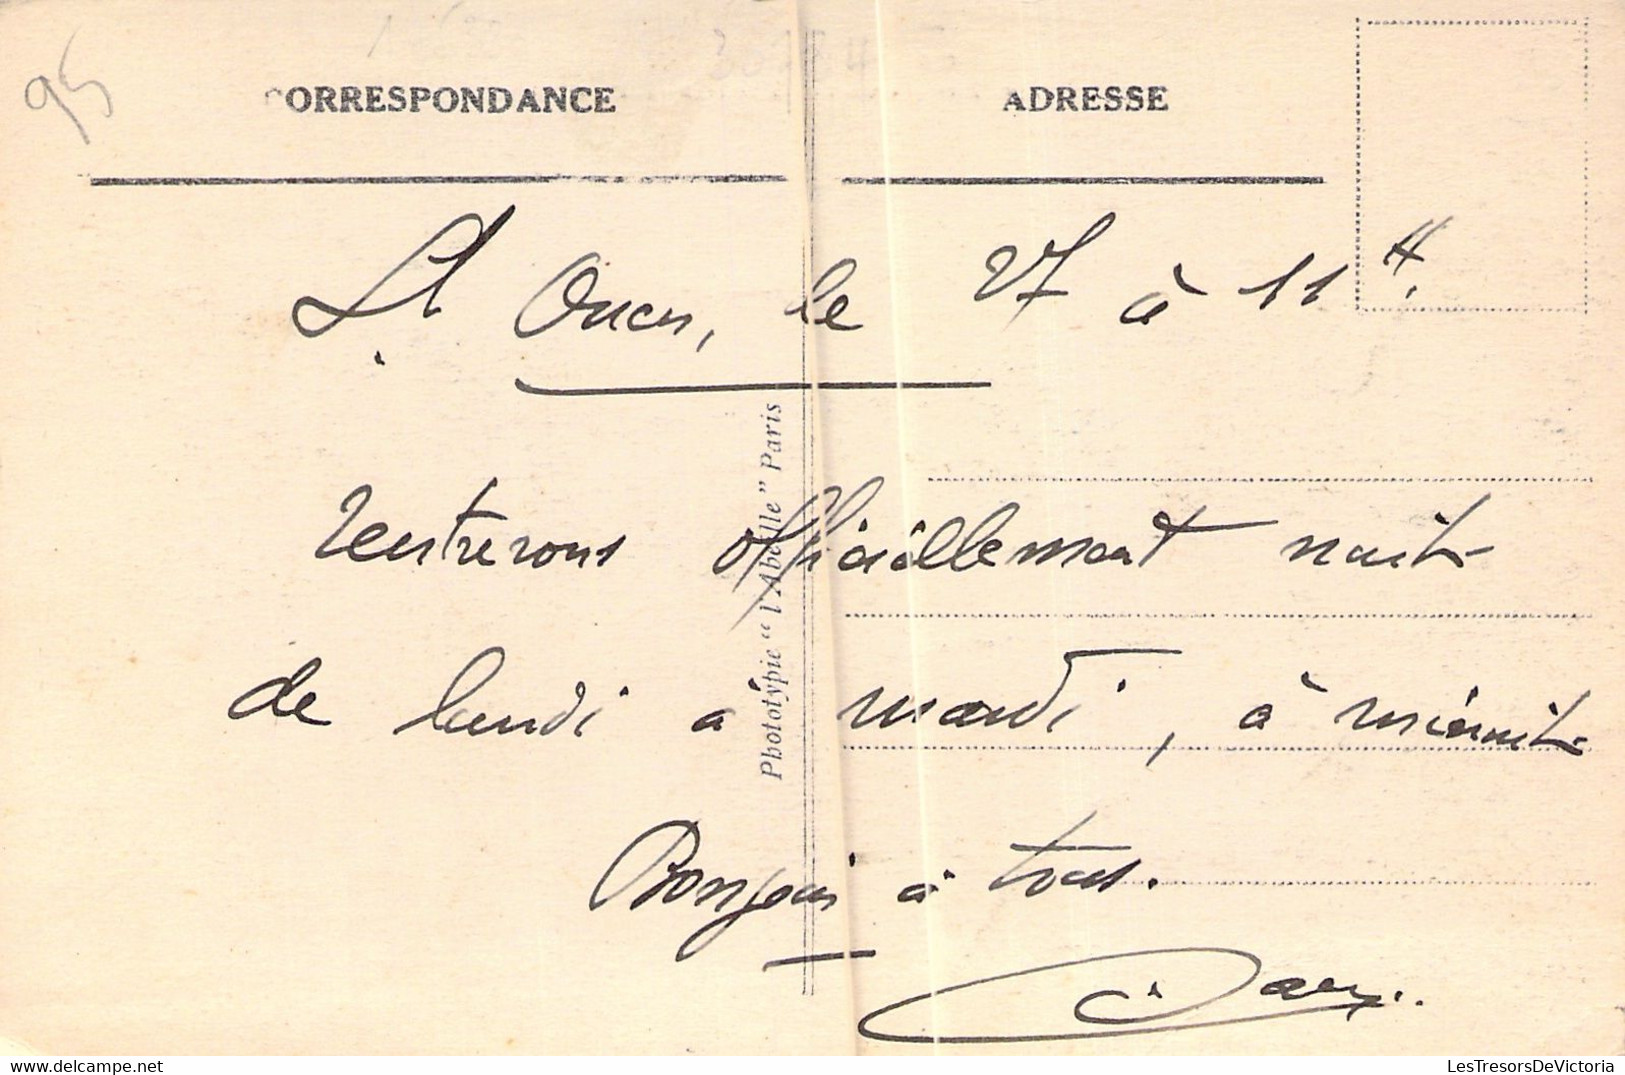 95
CORRESPONDANCE
ADRESSE
St Ouen, le 27 à 11 H.
rentrerons officiellement nuit
de lundi à mardi, à minuit
Bonjour à tous.
Phototypie “ l'Abeille ” Paris
LesTresorsDeVictoria